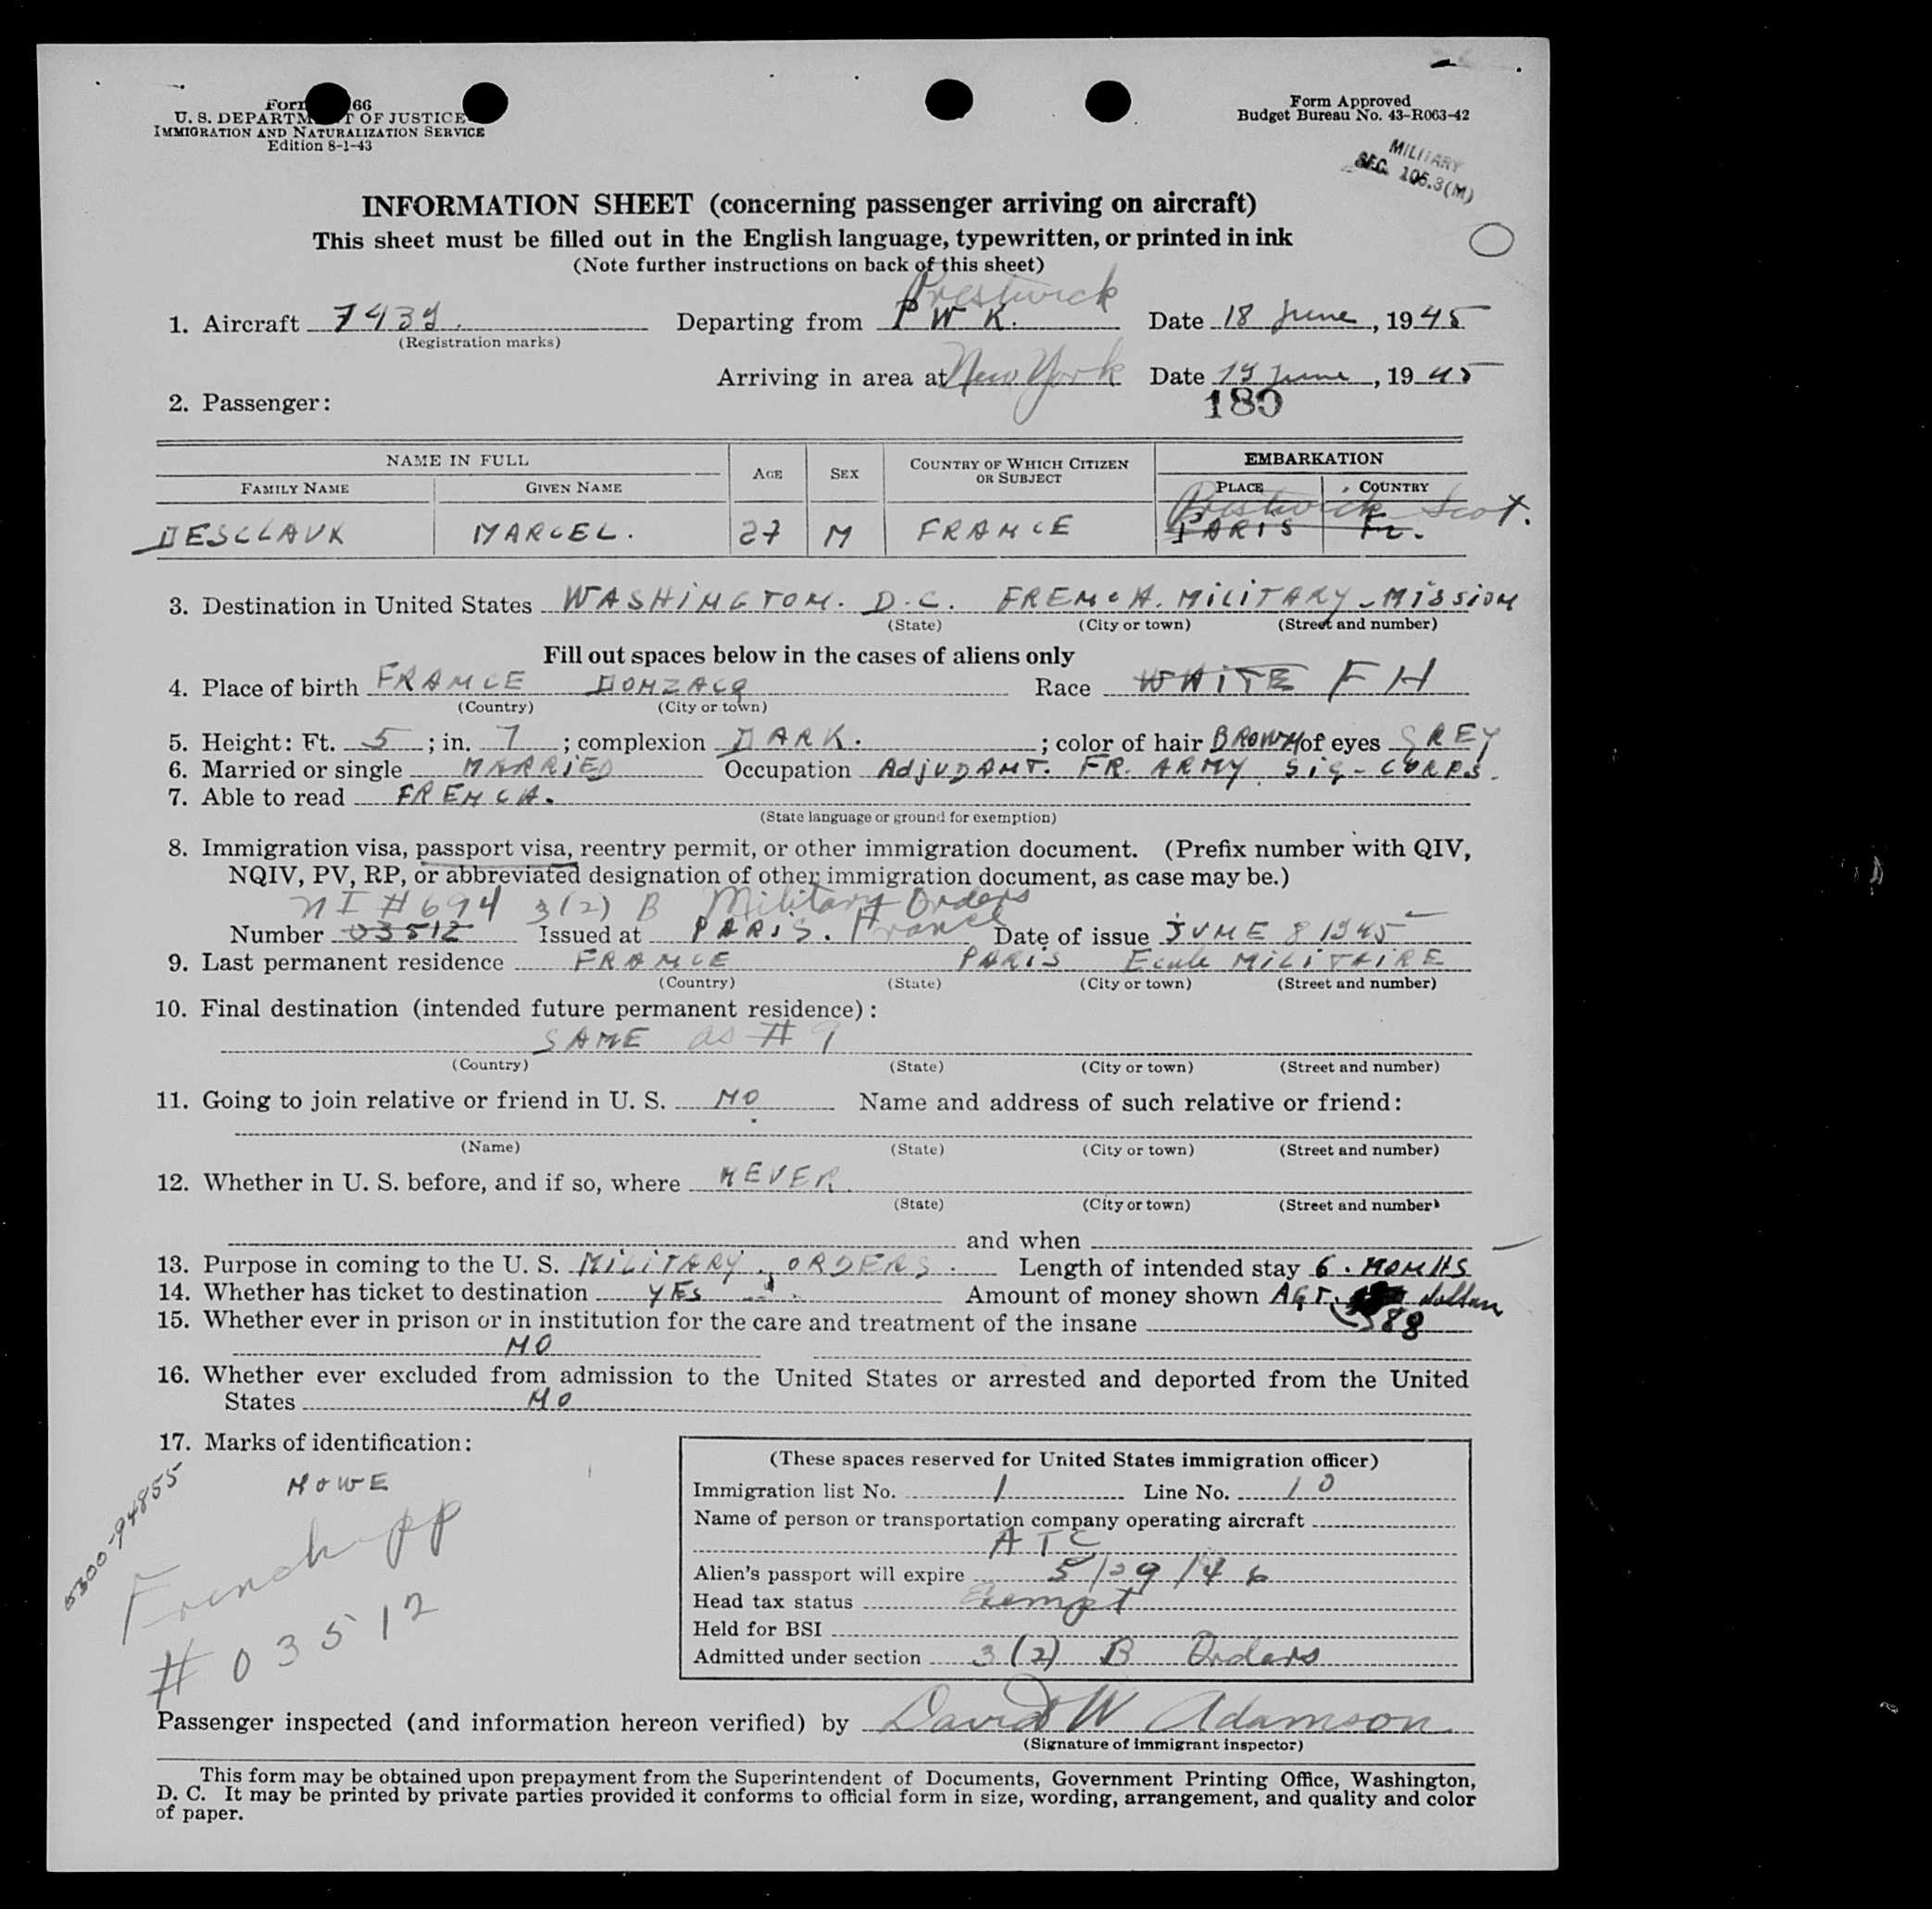 U. S. DEPARTMENT OF JUSTICE
IMMIGRATION AND NATURALIZATION SERVICE
Edition 8-1-43
Form Approved
Budget Bureau No. 43-R063-42
MILITARY
SEC. 105.3(M)
INFORMATION SHEET (concerning passenger arriving on aircraft)
This sheet must be filled out in the English language, typewritten, or printed in ink
(Note further instructions on back of this sheet)
Prestwick
1. Aircraft 7439. Departing from P W K. Date 18 June, 1945
(Registration marks)
Arriving in area at New York Date 19 June, 1945
2. Passenger:
189
NAME IN FULL AGE SEX COUNTRY OF WHICH CITIZEN OR SUBJECT EMBARKATION
FAMILY NAME GIVEN NAME PLACE COUNTRY
Prestwick Scot.
DESCLAUX MARCEL. 27 M FRANCE PARIS Fr.
3. Destination in United States WASHINGTON. D.C. FRENCH. MILITARY-MISSION
(State) (City or town) (Street and number)
Fill out spaces below in the cases of aliens only
4. Place of birth FRANCE DONZACQ Race WHITE FH
(Country) (City or town)
5. Height: Ft. 5; in. 7; complexion DARK.; color of hair BROWN of eyes GREY
6. Married or single MARRIED Occupation AdJUDANT. FR. ARMY. Sig-CORPS.
7. Able to read FRENCH.
(State language or ground for exemption)
8. Immigration visa, passport visa, reentry permit, or other immigration document. (Prefix number with QIV,
NQIV, PV, RP, or abbreviated designation of other immigration document, as case may be.)
NI #694 3(2) B Military Orders
Number 03512 Issued at PARIS. France Date of issue JUNE 8 1945
9. Last permanent residence FRANCE PARIS Ecole MILITAIRE
(Country) (State) (City or town) (Street and number)
10. Final destination (intended future permanent residence):
SAME as #9
(Country) (State) (City or town) (Street and number)
11. Going to join relative or friend in U. S. NO Name and address of such relative or friend:
(Name) (State) (City or town) (Street and number)
12. Whether in U. S. before, and if so, where NEVER.
(State) (City or town) (Street and number)
and when
13. Purpose in coming to the U. S. MILITARY. ORDERS. Length of intended stay 6. MONTHS
14. Whether has ticket to destination YES Amount of money shown AGT. dollars
15. Whether ever in prison or in institution for the care and treatment of the insane 88
NO
16. Whether ever excluded from admission to the United States or arrested and deported from the United
States NO
17. Marks of identification:
NONE
6300-94855
French pp
# 03512
(These spaces reserved for United States immigration officer)
Immigration list No. 1 Line No. 10
Name of person or transportation company operating aircraft
ATC
Alien's passport will expire 5/29/46
Head tax status Exempt
Held for BSI
Admitted under section 3(2) B Orders
Passenger inspected (and information hereon verified) by David W Adamson
(Signature of immigrant inspector)
This form may be obtained upon prepayment from the Superintendent of Documents, Government Printing Office, Washington,
D. C. It may be printed by private parties provided it conforms to official form in size, wording, arrangement, and quality and color
of paper.